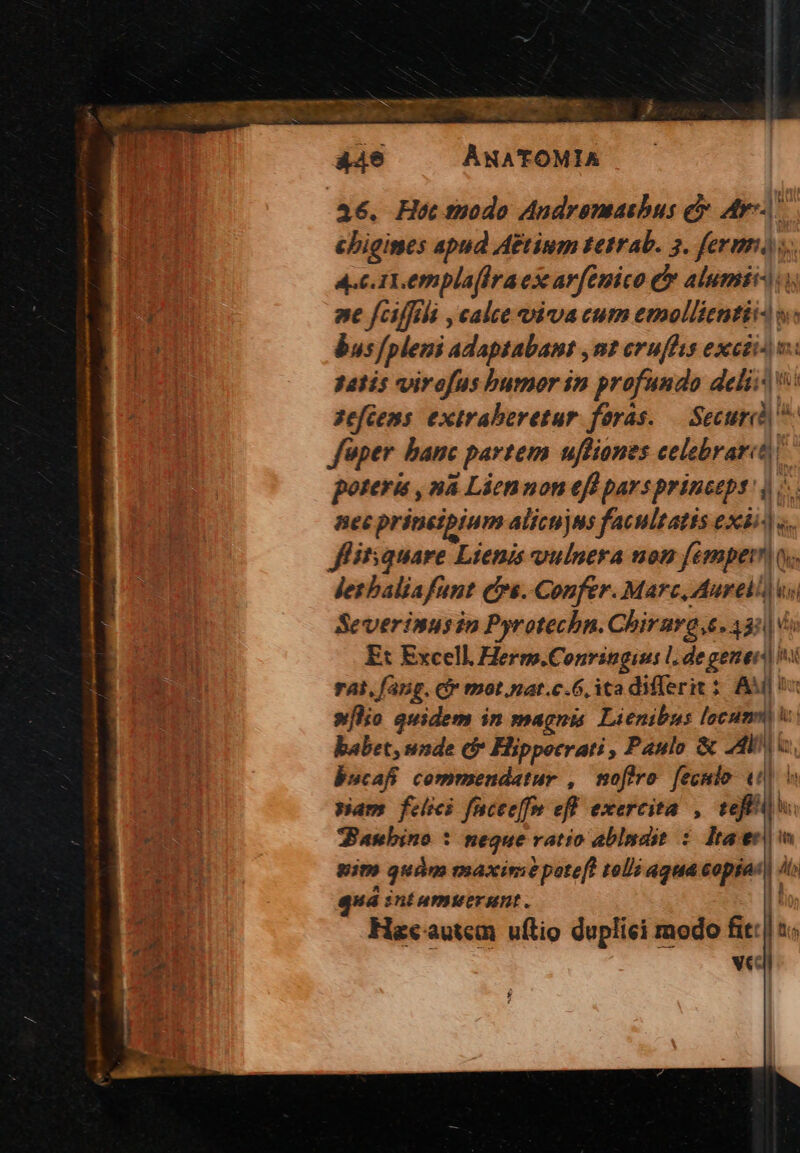 446 ANATOMIA
36. Hoc modo Andromachus & Ar-
chigines apud Aëtium tetrab. 3. serm.
4.c.11.emplastra ex arsenico & alumi-
ne scissili , calce viva cum emollienti-
bus spleni adaptabant , ut crustis exci-
tatis virosus humor in profundo deli-
tescens extraheretur foràs. Securè
super hanc partem ustiones celebrare
poteris , nā Lien non est pars princeps
nec principium alicujus facultatis exi-
stit; quare Lienis vulnera non semper
lethalia sunt &c. Confer. Marc. Aurel.
Severinus in Pyrotechn. Chirurg.c.
Et Excell. Herm. Conringius l. de gene-
rat. sang. & mot.nat.c.6. ita differit : At
ustio quidem in magnis Lienibus locum
habet, unde & Hippocrati , Paulo & Al-
bucasi commendatur , nostro seculo
felici successu est exercita , teste
Bauhino : neque ratio abludit : Ita
enim quàm maximè potest tolli aqua copia
quâ intumuerunt.
Hæc autem ustio duplici modo fit: